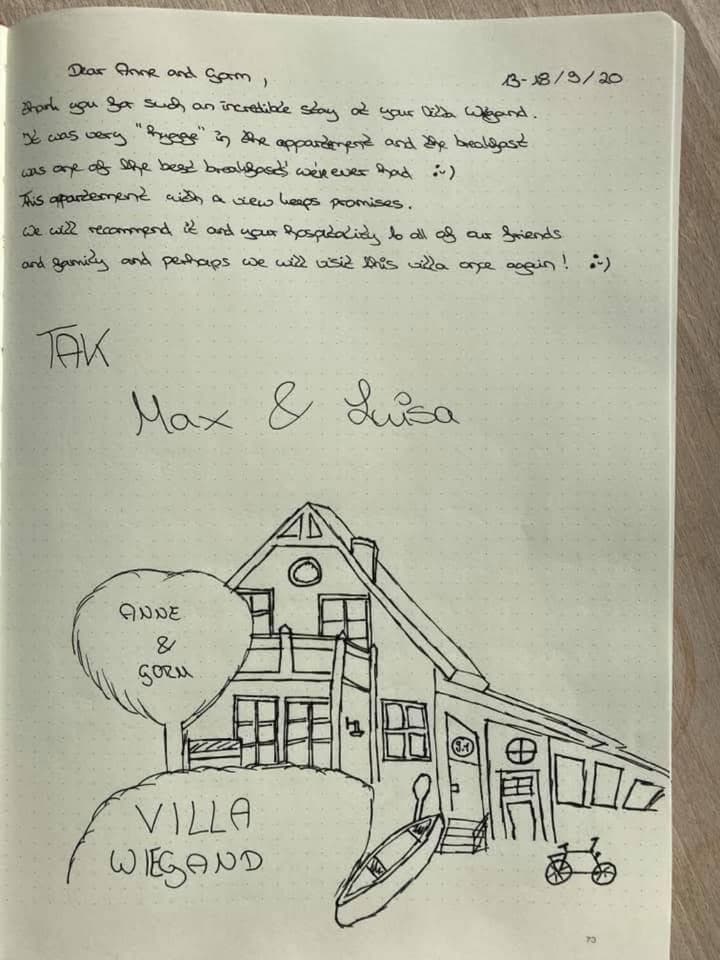 Dear Anne and Gorm, 13-18/9/20
thank you for such an incredible stay at your Villa Wiegand.
It was very "hygge" in the appartement and the breakfast
was one of the best breakfasts we've ever had :-)
This appartement with a view keeps promises.
We will recommend it and your hospitality to all of our friends
and family and perhaps we will visit this villa once again! :-)
TAK
Max & Luisa
ANNE
&
GORM
9.1
VILLA
WIEGAND
73